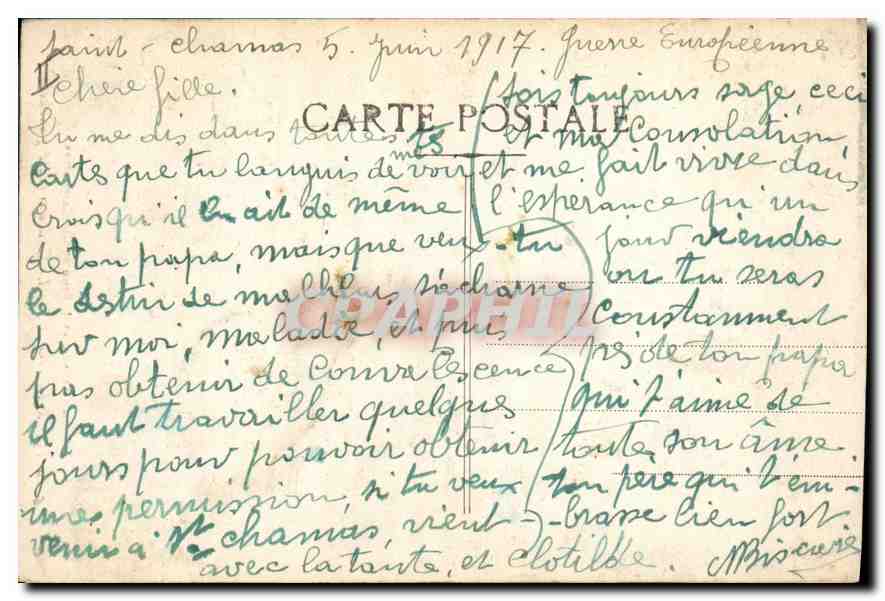 Saint-Chamas 5. Juin 1917. Guerre Européenne
II
Chère fille.
CARTE POSTALE
Tu me dis dans toutes tes
cartes que tu languis de me voir
Crois qu'il en ait de même
de ton papa, mais que veux-tu
le destin de malheur s'acharne
sur moi, malade, et puis
pas obtenir de Convalescence
il faut travailler quelques
jours pour pouvoir obtenir
une permission, si tu veux
venir à St Chamas, vient
avec la tante, et Clotilde.
sois toujours sage ceci
et ma Consolation
et me fait vivre dans
l'espérance qu'un
jour viendra
ou tu seras
Constamment
près de ton papa
qui t'aime de
toute son âme
ton père qui t'em-
-brasse bien fort
CPAPHIL